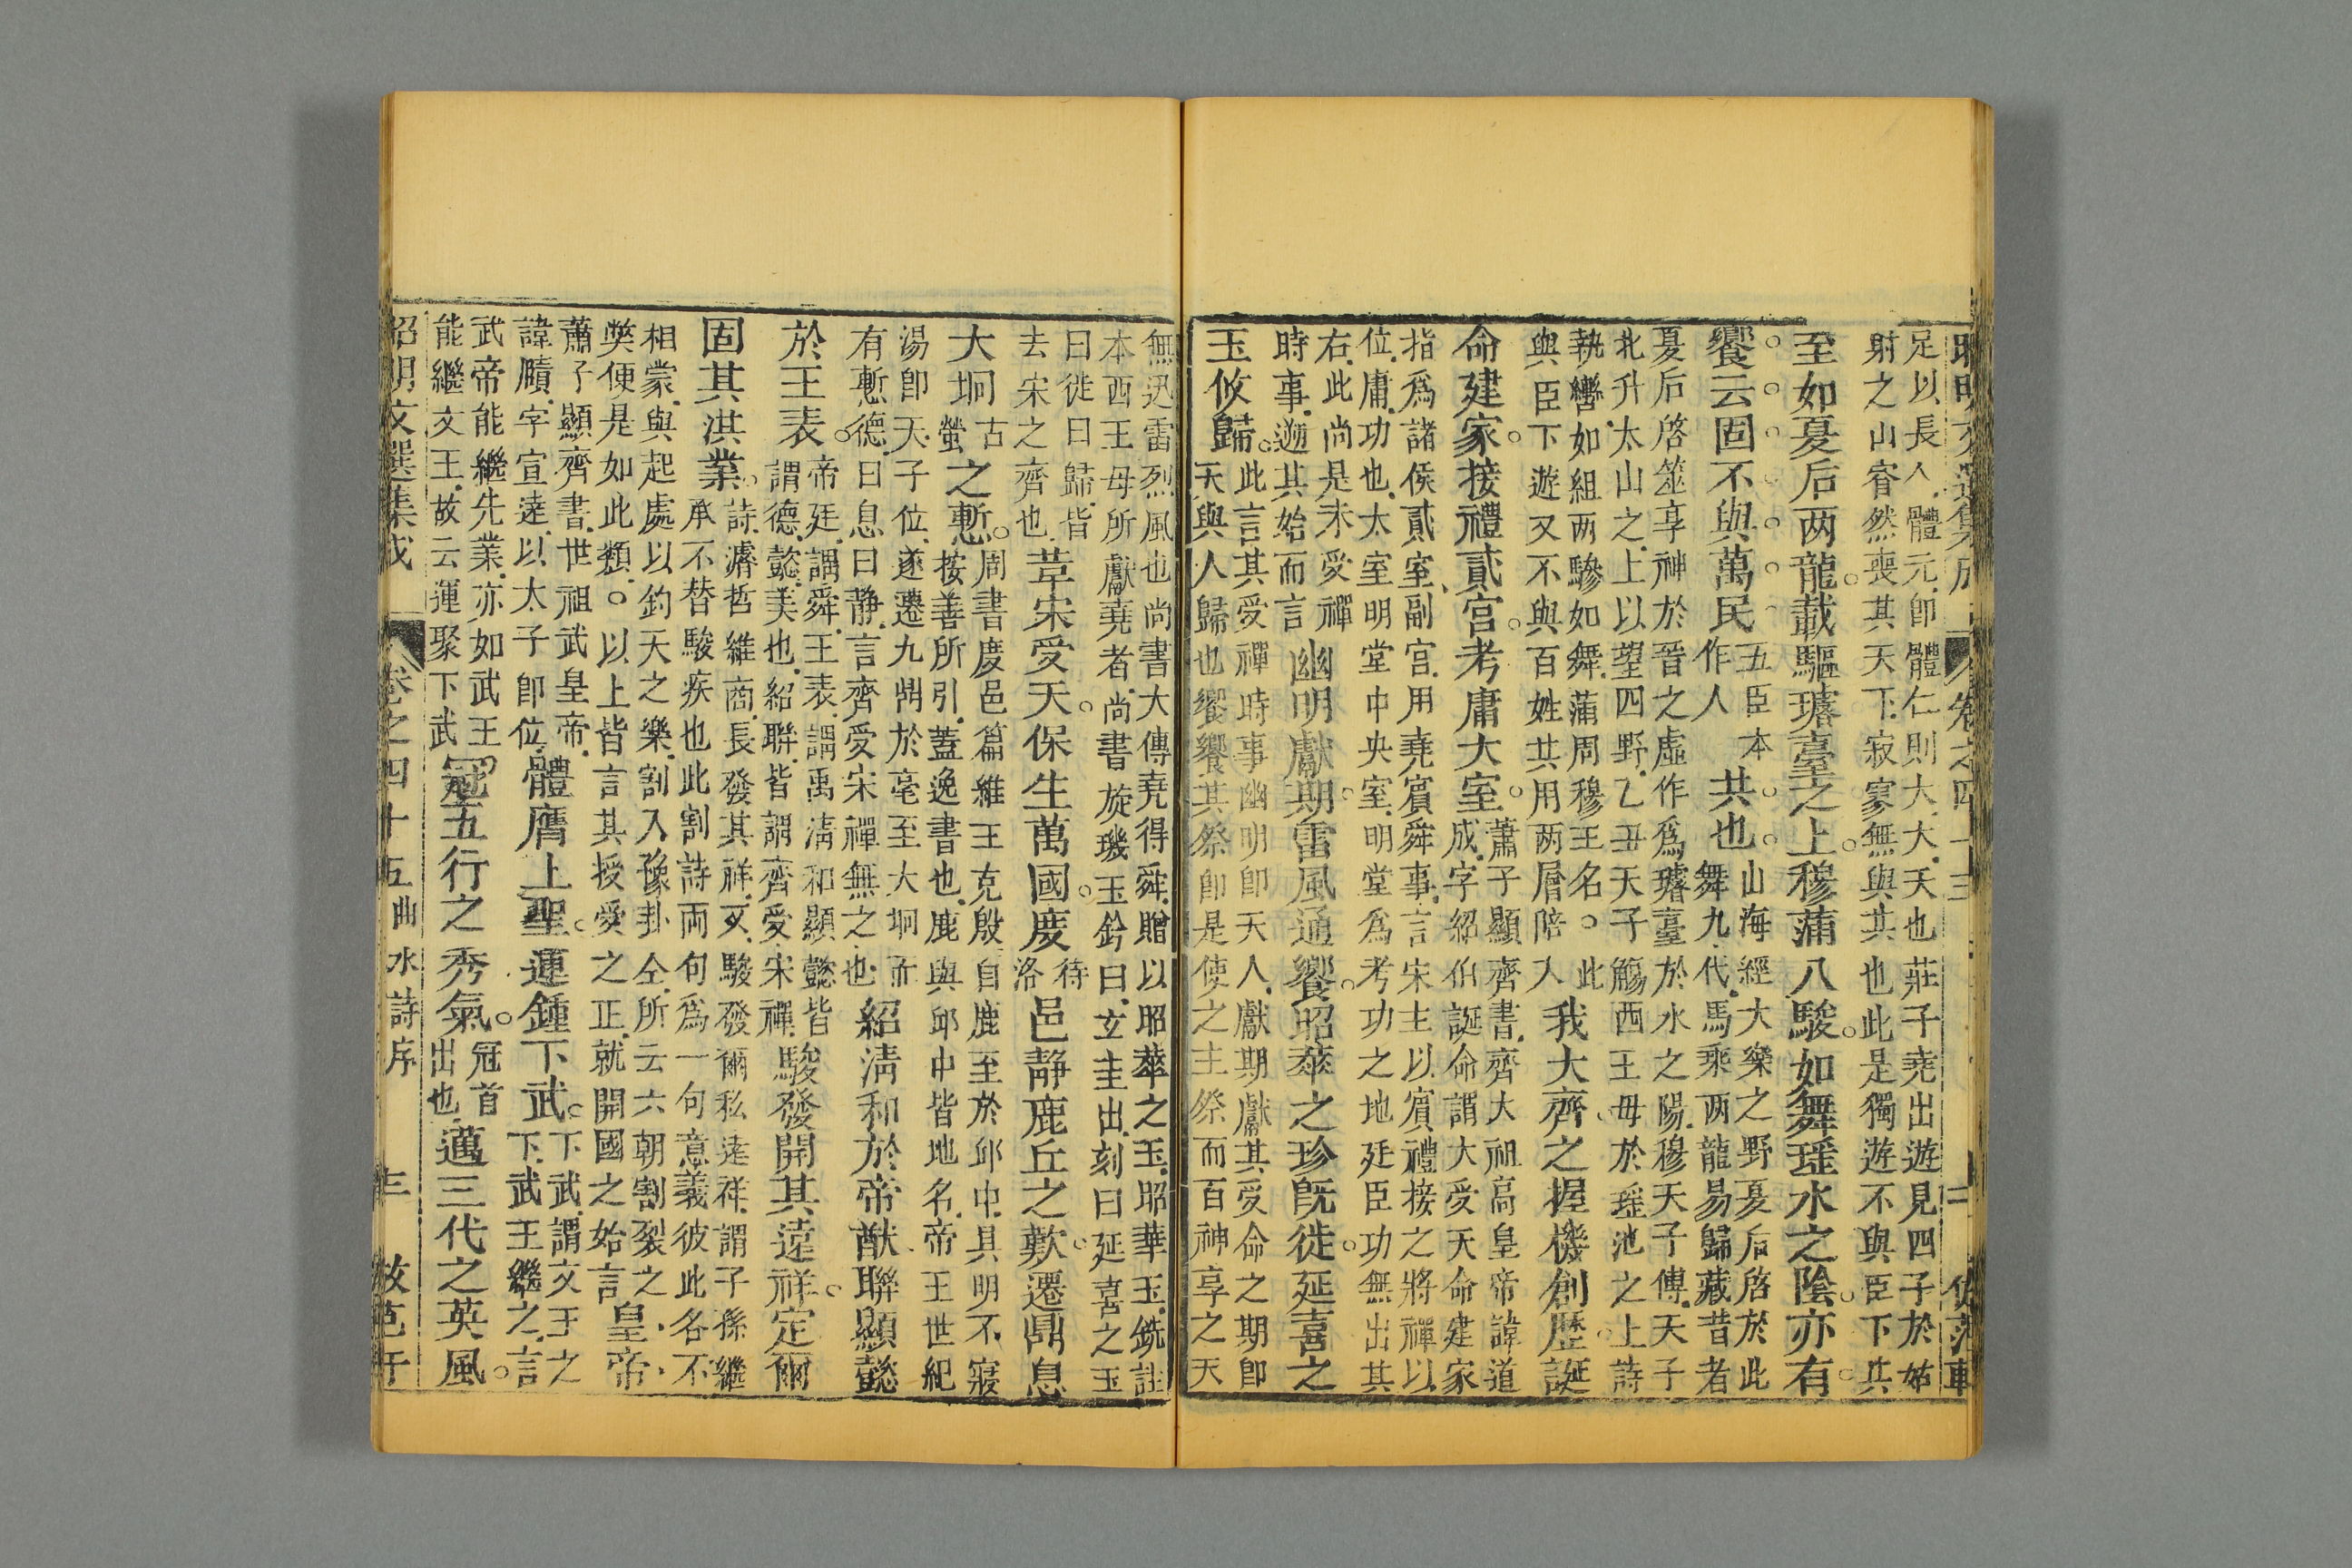 昭明文選集成 卷之四十 二 仿范軒
足以長人體元卽體仁則大大天也莊子堯出遊見四子於姑
射之山窅然喪其天下寂寥無與共也此是獨遊不與臣下共
至如夏后两龍。載驅璿臺之上。穆蒲八駿。如舞瑤水之陰。亦有
饗云。固不與萬民五臣本作人共也。山海經大樂之野夏后啓於此舞九代馬乘两龍易歸藏昔者
夏后啓筮享神於晉之虛作爲璿臺於水之陽穆天子傳天子
北升太山之上以望四野乙丑天子觴西王母於瑤池之上詩
執轡如組两驂如舞蒲周穆王名○此與臣下遊又不與百姓共用两層陪入我大齊之握機創歷。誕
命建家。接禮貳宮。考庸大室。蕭子顯齊書齊大祖高皇帝諱道成字紹伯誕命謂大受天命建家
指爲諸侯貳室副宮用堯賓舜事言宋主以賓禮接之將禪以
位庸功也太室明堂中央室明堂爲考功之地廷臣功無出其
右此尚是未受禪時事遡其始而言幽明獻期。雷風通饗。昭華之珍旣徙。延喜之
玉攸歸。此言其受禪時事幽明卽天人獻期獻其受命之期卽天與人歸也饗饗其祭卽是使之主祭而百神享之天
無迅雷烈風也尚書大傳堯得舜贈以昭華之玉昭華玉銑註
本西王母所獻堯者尚書旋璣玉鈐曰玄圭出刻曰延喜之玉
曰徙曰歸皆去宋之齊也革宋受天。保生萬國。度待洛邑靜鹿丘之歎。遷鼎息
大坰古螢之慙。周書度邑篇維王克殷自鹿至於邱中具明不寢按善所引蓋逸書也鹿與邱中皆地名帝王世紀
湯卽天子位遂遷九鼎於亳至大坰而有慙德曰息曰静言齊受宋禪無之也紹淸和於帝猷聯顯懿
於王表。帝廷謂舜王表謂禹淸和顯懿皆謂德懿美也紹聯皆謂齊受宋禪駿發開其遠祥。定爾
固其洪業。詩濬哲維商長發其祥又駿發爾私遠祥謂子孫繼承不替駿疾也此割詩兩句爲一句意義彼此各不
相蒙與起處以鈞天之樂割入豫卦仝所云六朝割裂之獘便是如此類○以上皆言其授受之正就開國之始言皇帝
蕭子顯齊書世祖武皇帝諱賾字宣逺以太子卽位體膺上聖。運鍾下武。下武謂文王之下武王繼之言
武帝能繼先業亦如武王能繼文王故云運聚下武冠五行之秀氣。冠首出也邁三代之英風。
昭明文選集成 卷之四十五曲水詩序 三 仿范軒